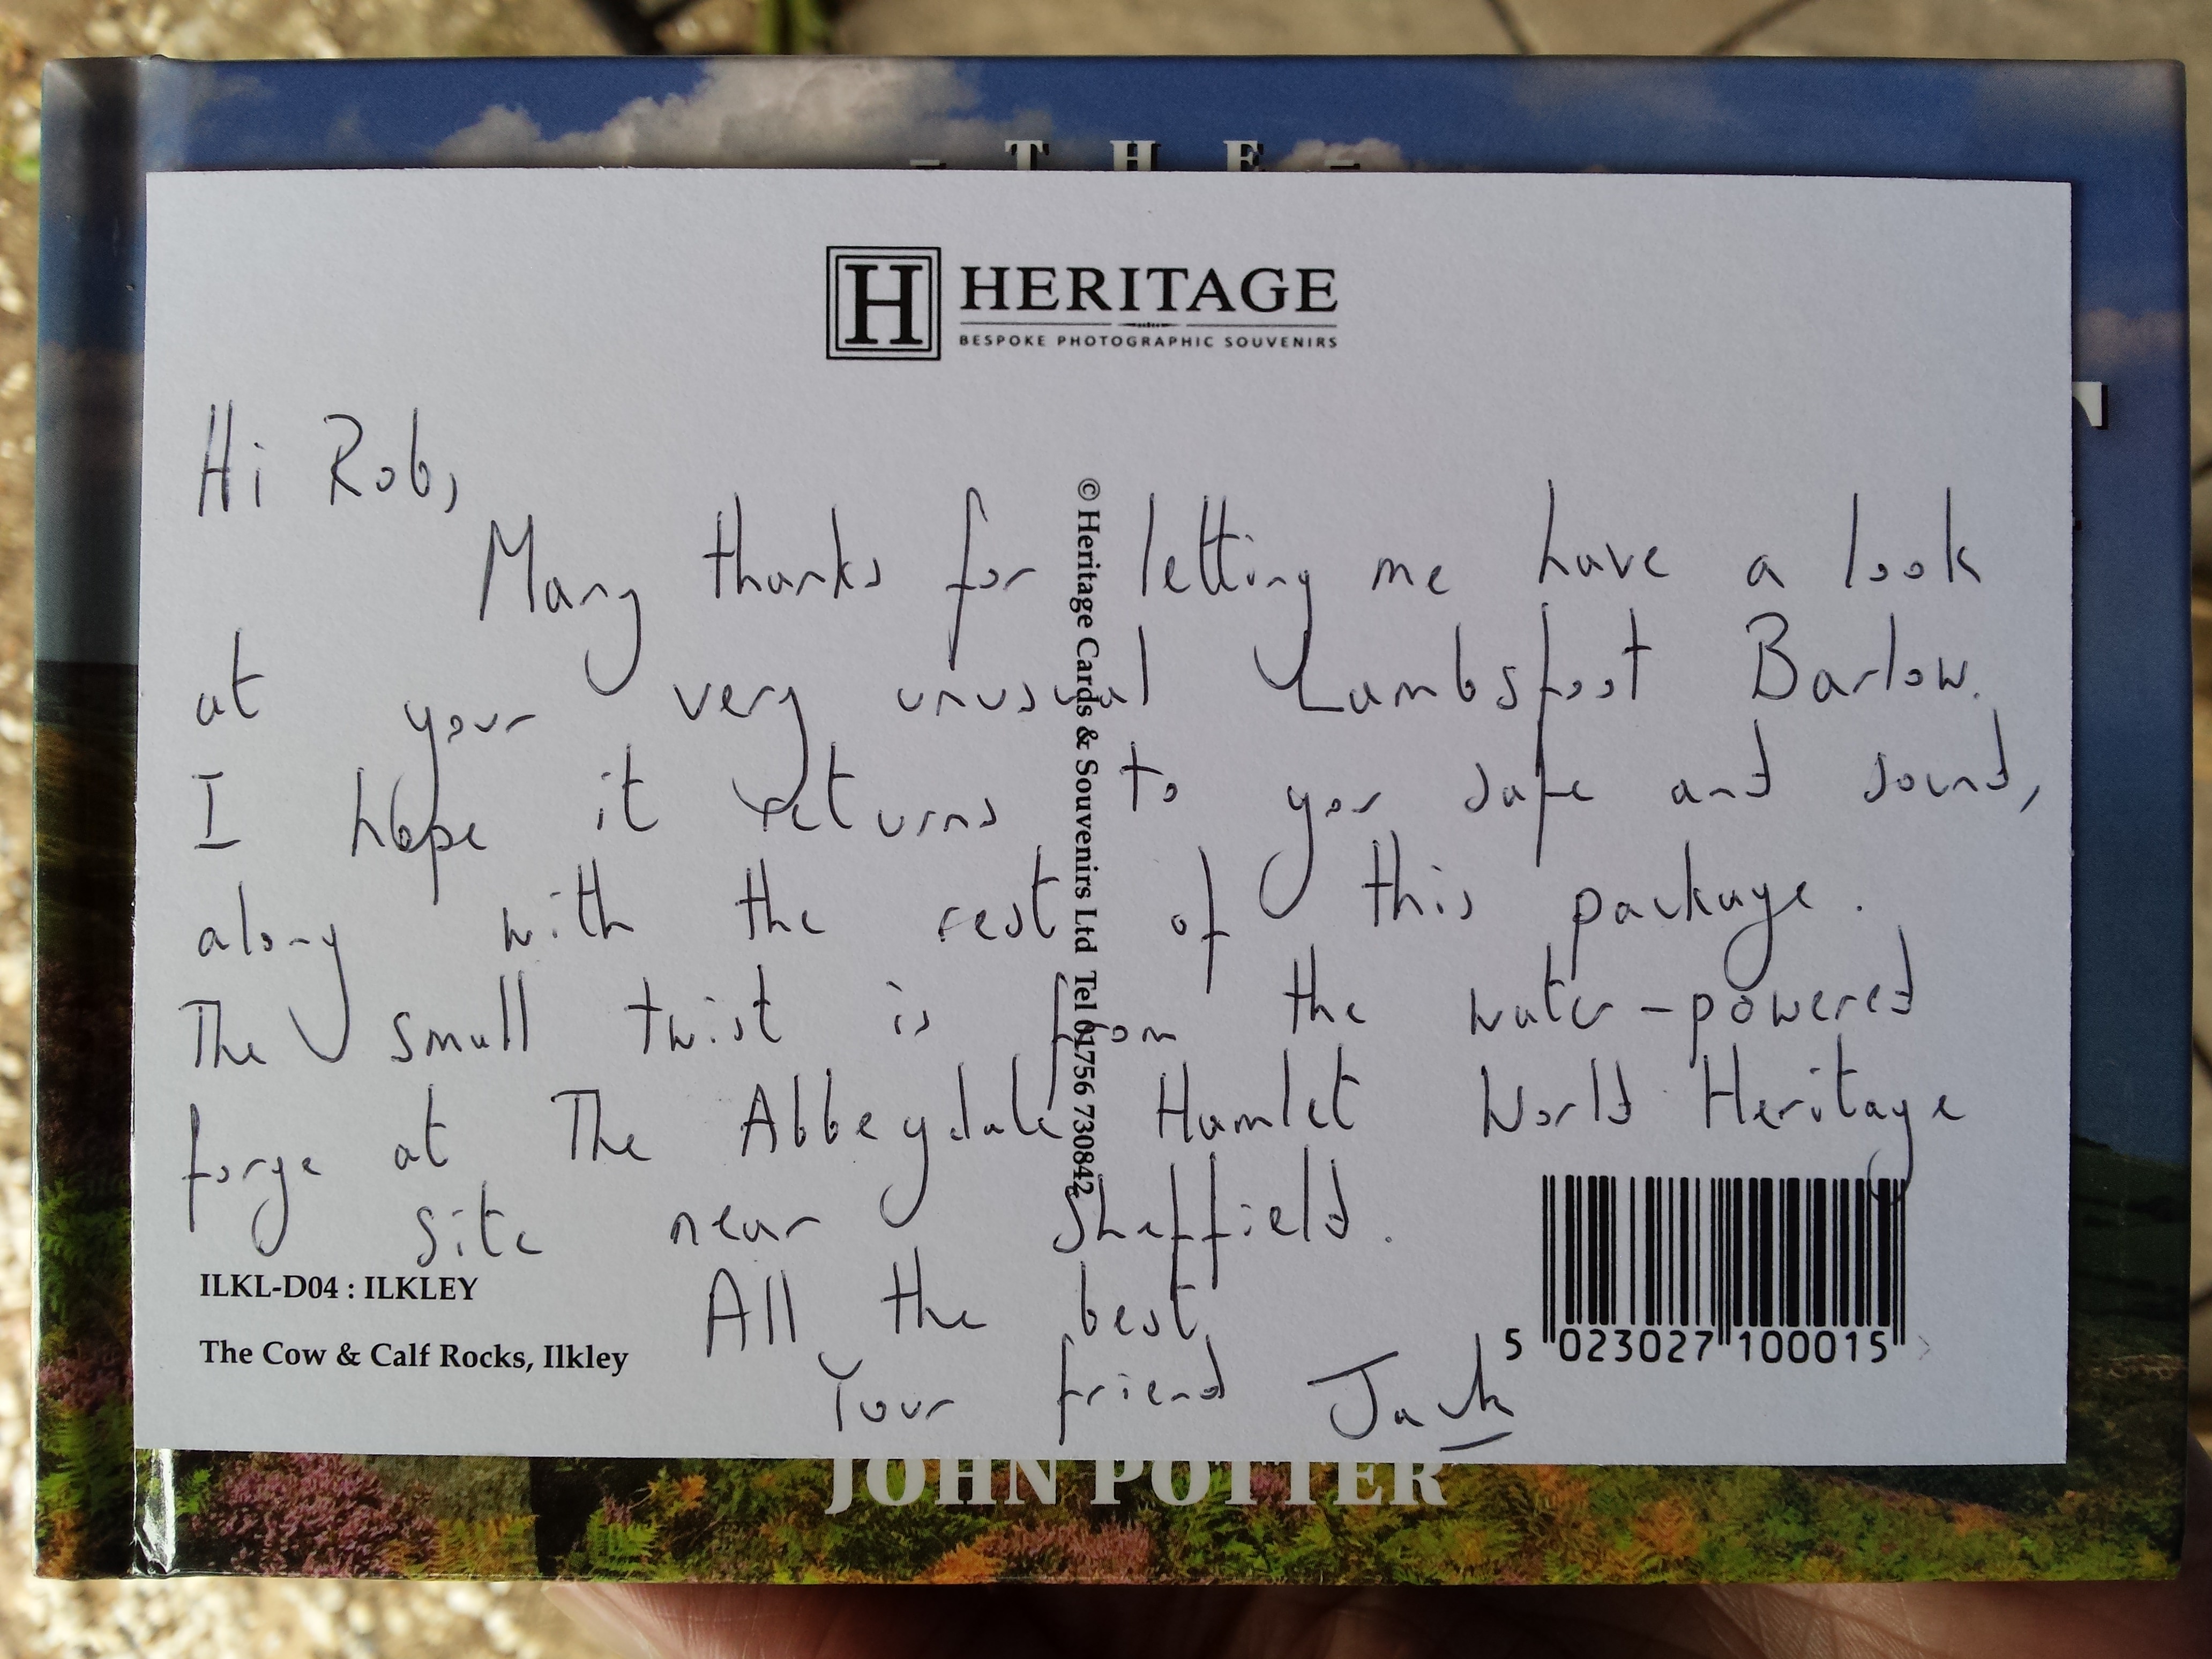 – THE –
H HERITAGE
BESPOKE PHOTOGRAPHIC SOUVENIRS
Hi Rob,
Many thanks for letting me have a look
at your very unusual Lambsfoot Barlow.
I hope it returns to you safe and sound,
along with the rest of this package.
The small twist is from the water-powered
forge at The Abbeydale Hamlet World Heritage
site near Sheffield.
All the best
Your friend Jack
© Heritage Cards & Souvenirs Ltd Tel 01756 730842
ILKL-D04 : ILKLEY
The Cow & Calf Rocks, Ilkley
5 023027 100015
JOHN POTTER